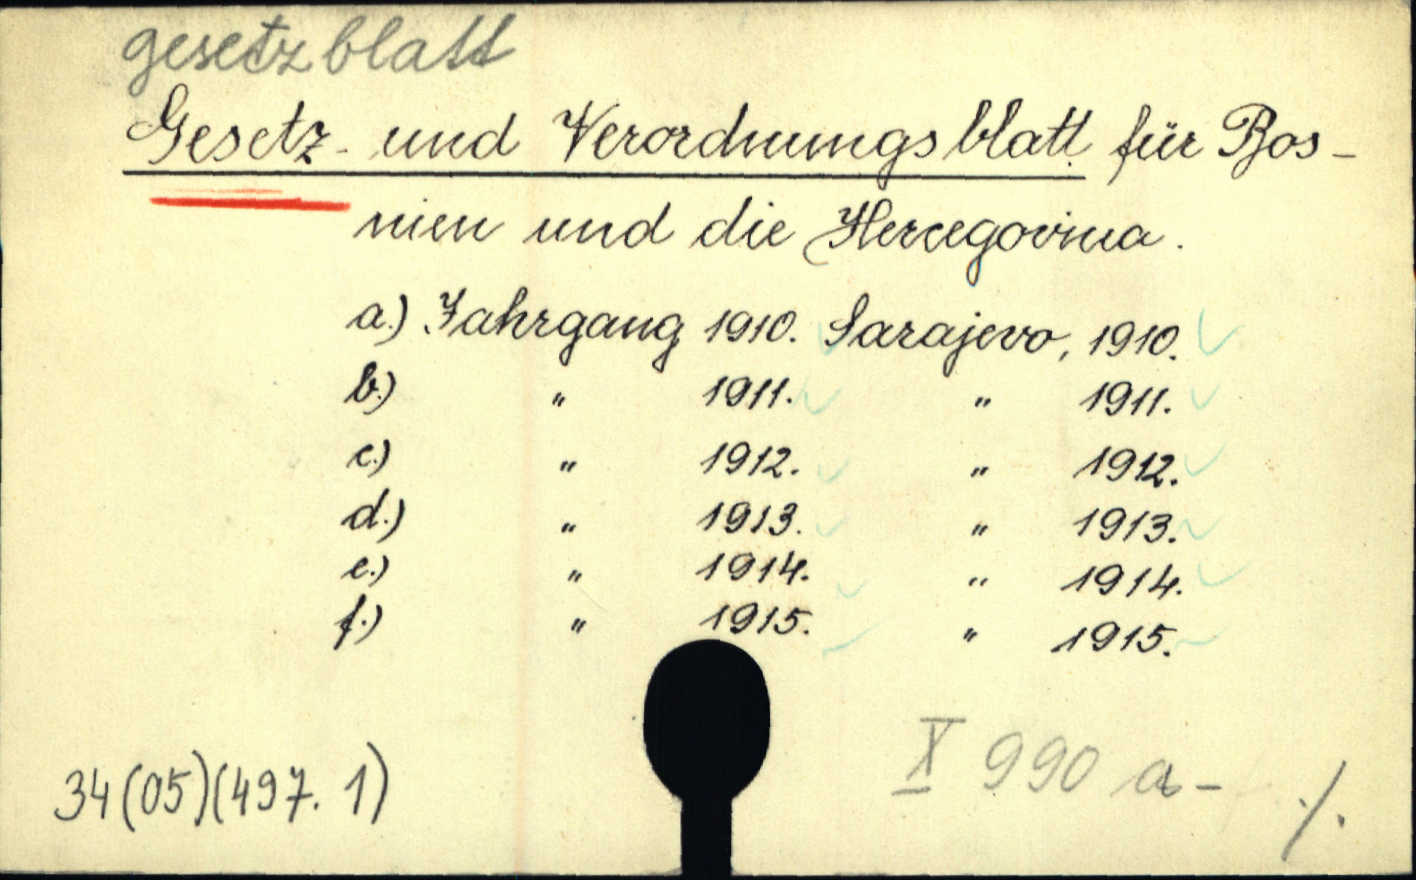 gesetzblatt
Gesetz- und Verordnungsblatt für Bos-
nien und die Hercegovina.
a.) Jahrgang 1910. Sarajevo, 1910.
b.) " 1911. " 1911.
c.) " 1912. " 1912.
d.) " 1913. " 1913.
e.) " 1914. " 1914.
f.) " 1915. " 1915.
X 990 a-
34(05)(497.1) ./.